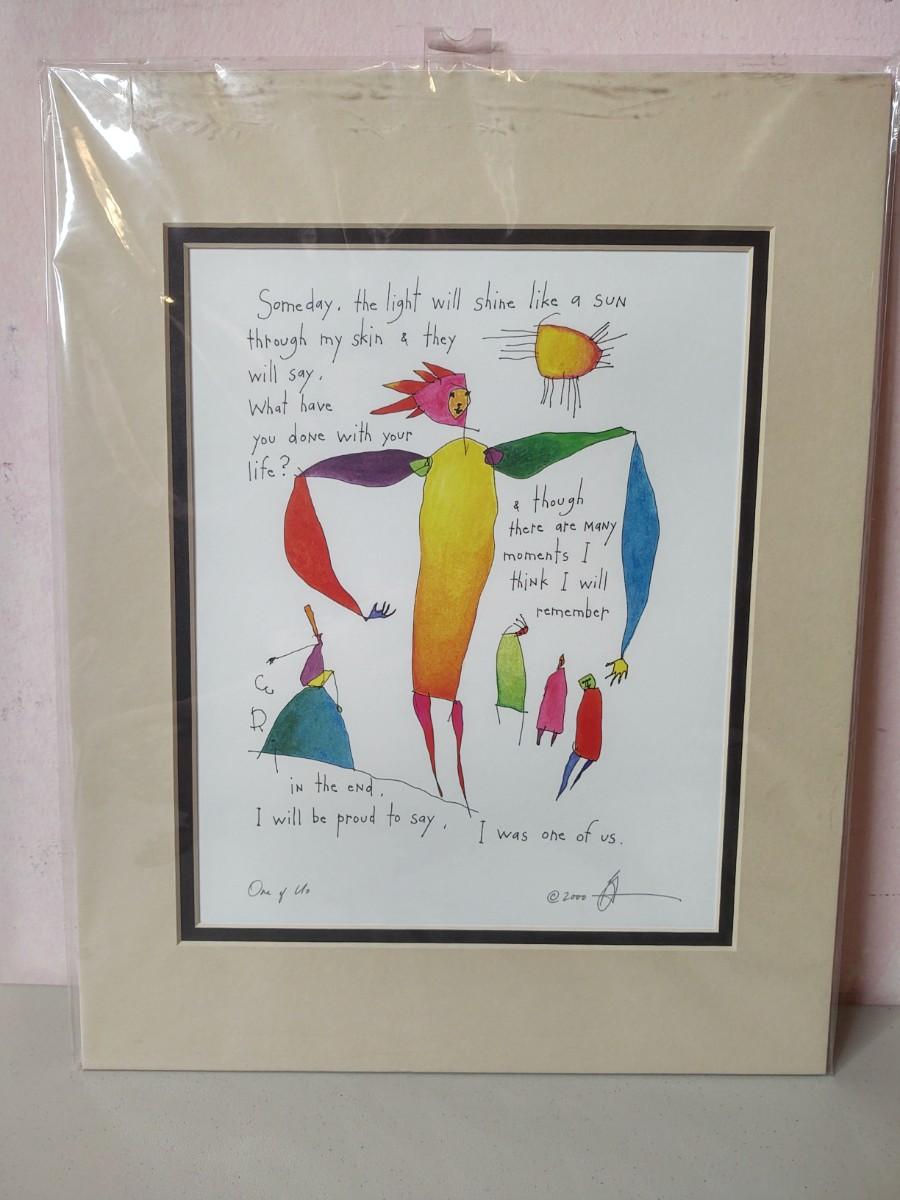 Someday, the light will shine like a SUN
through my skin & they
will say,
What have
you done with your
life?
& though
there are MANY
moments I
think I will
remember
in the end,
I will be proud to say,
I was one of us.
One of Us
© 2000